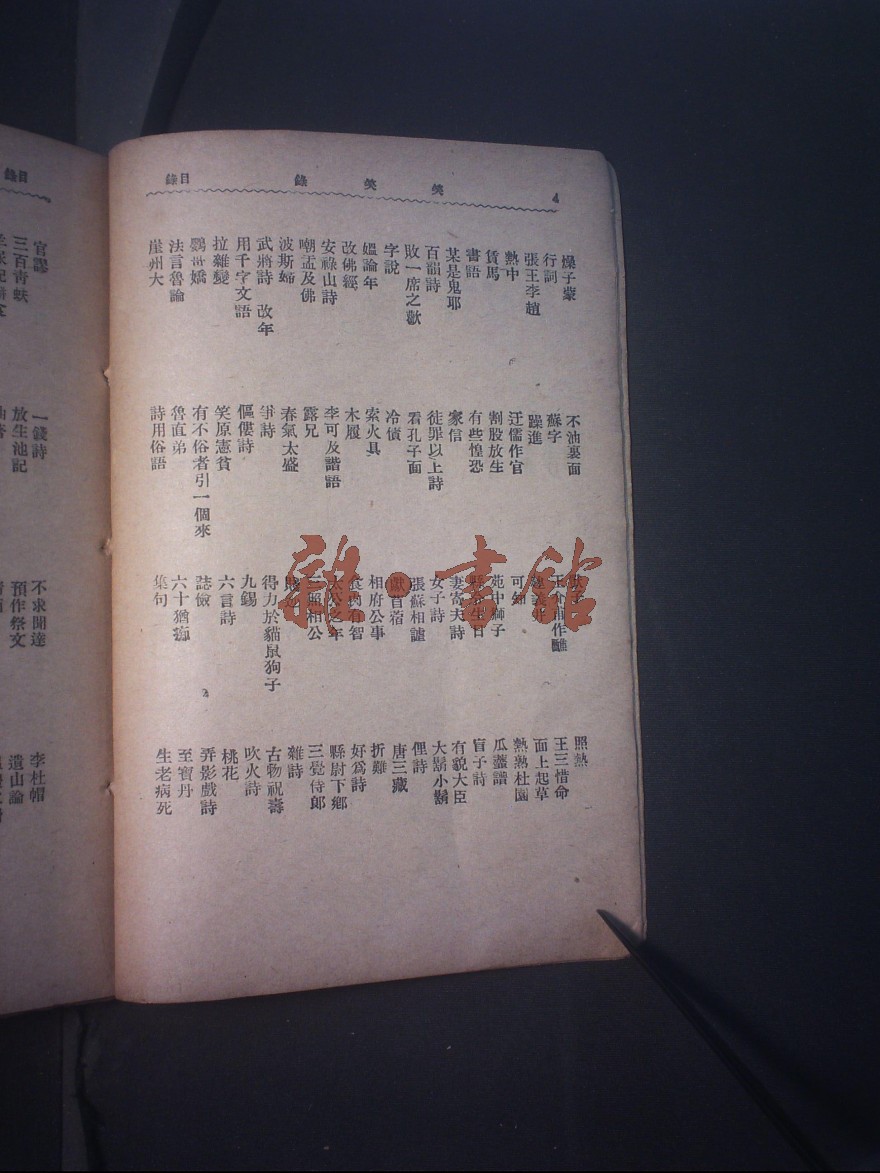 4
笑笑錄
目錄
燥子蒙
行詞
張王李趙
熱中
賃馬
書語
某是鬼耶
百韻詩
敗一席之歡
字說
媼論年
改佛經
安祿山詩
嘲孟及佛
波斯婦
武將詩 改年
用千字文語
拉雜變
法言魯論
崖州大
不油裏面
蘇字
躁進
迂儒作官
割股放生
有些惶恐
家信
徒罪以上詩
看孔子面
冷債
索火具
木屐
李可及諧語
露兄
春氣太盛
爭詩
傴僂詩
笑原憲貧
有不俗者引一個來
魯直弟
詩用俗語
可知
苑中獅子
生日
妻寄夫詩
女子詩
張蘇相謔
獻苜蓿
相府公事
食肉有智
太公之年
三照相公
得力於貓鼠狗子
九錫
六言詩
誌儉
六十猶痴
集句
照熱
王三惜命
面上起草
熱熟杜園
瓜虀譜
盲子詩
有貌大臣
大鬍小鬍
俚詩
唐三藏
折難
好爲詩
縣尉下鄉
三覺侍郎
雜詩
古物祝壽
吹火詩
桃花
弄影戲詩
至寶丹
生老病死
雜·書館
目錄
官謬
三百青蚨
一錢詩
放生池記
不求聞達
預作祭文
李杜帽
遺山論